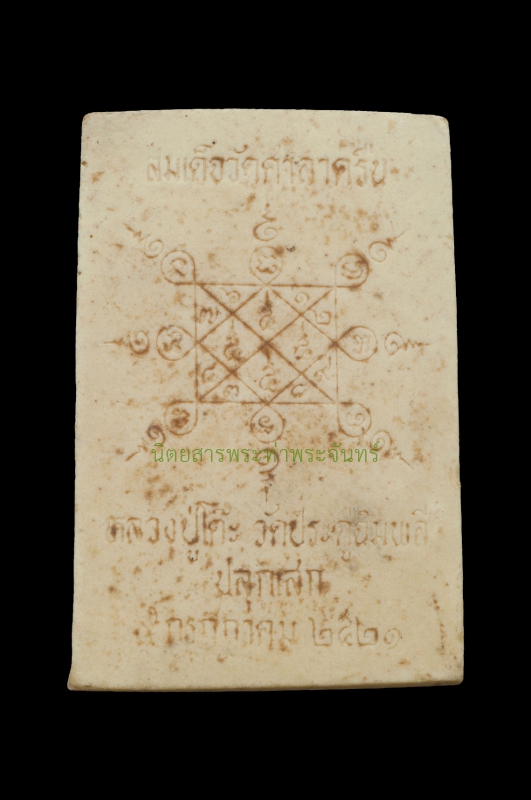 สมเด็จวัดศาลาครืน
นิตยสารพระท่าพระจันทร์
หลวงปู่โต๊ะ วัดประดู่ฉิมพลี
ปลุกเสก
๕ กรกฎาคม ๒๕๒๑